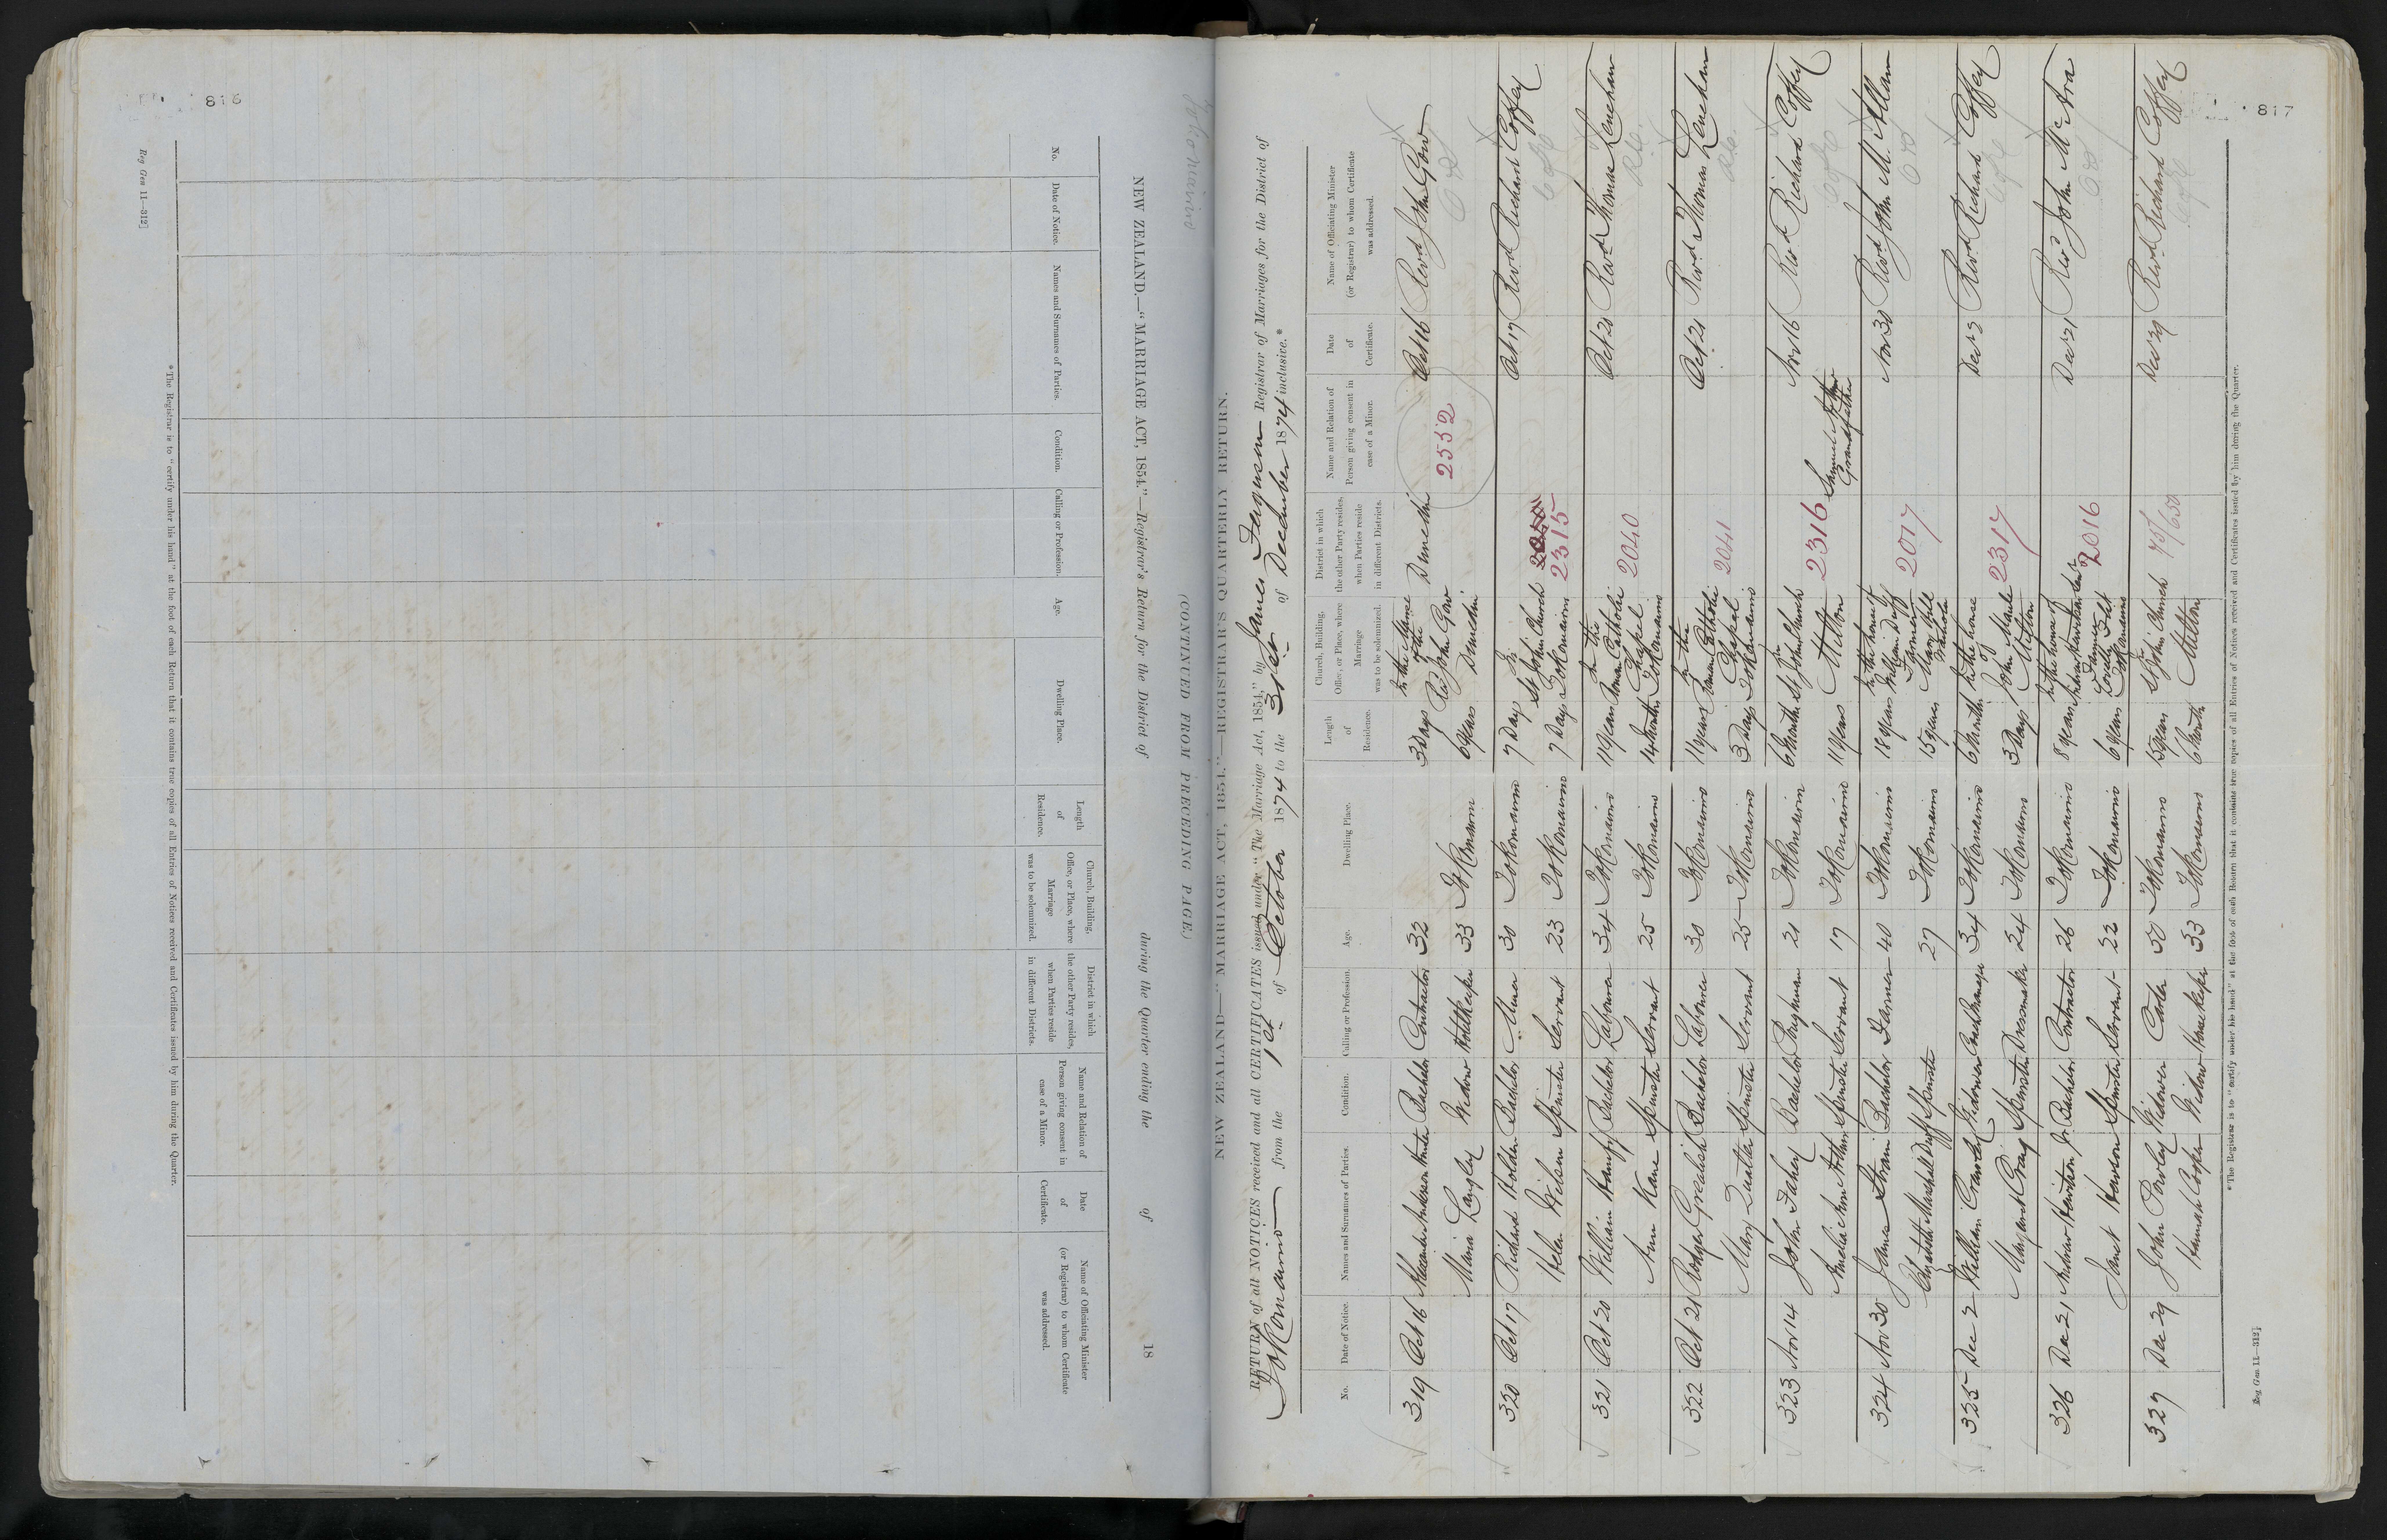 816
Reg Gen 11—312]
No.
Date of Notice.
Names and Surnames of Parties.
Condition.
Calling or Profession.
Age.
Dwelling Place.
Length
of
Residence.
Church, Building,
Office, or Place, where
Marriage
was to be solemnized.
District in which
the other Party resides,
when Parties reside
in different Districts.
Name and Relation of
Person giving consent in
case of a Minor.
Date
of
Certificate.
Name of Officiating Minister
(or Registrar) to whom Certificate
was addressed.
NEW ZEALAND.—"MARRIAGE ACT, 1854."—Registrar's Return for the District of during the Quarter ending the of 18
(CONTINUED FROM PRECEDING PAGE.)
* The Registrar is to "certify under his hand" at the foot of each Return that it contains true copies of all Entries of Notices received and Certificates issued by him during the Quarter.
Tokomairiro
817
NEW ZEALAND—"MARRIAGE ACT, 1854."—REGISTRAR'S QUARTERLY RETURN.
RETURN of all NOTICES received and all CERTIFICATES issued under "The Marriage Act, 1854," by James Ferguson Registrar of Marriages for the District of
Tokomairiro from the 1st of October 1874 to the 31st of December 1874 inclusive.*
No.
Date of Notice.
Names and Surnames of Parties.
Condition.
Calling or Profession.
Age.
Dwelling Place.
Length
of
Residence.
Church, Building,
Office, or Place, where
Marriage
was to be solemnized.
District in which
the other Party resides,
when Parties reside
in different Districts.
Name and Relation of
Person giving consent in
case of a Minor.
Date
of
Certificate.
Name of Officiating Minister
(or Registrar) to whom Certificate
was addressed.
319 Oct 16 Alexander Anderson Hunter Bachelor Contractor 32 3 Days In the Manse of the Dunedin Oct 16 Revd John Gow
Maria Langley Widow Hotelkeeper 33 Tokomairiro 6 years Rev John Gow Dunedin 2552
320 Oct 17 Richard Holden Bachelor Miner 30 Tokomairiro 7 Days In St John Church 2040 Oct 17 Revd Richard Coffey
Helen Wilson Spinster Servant 23 Tokomairiro 7 Days Tokomairiro 2315
321 Oct 20 William Hanify Bachelor Labourer 34 Tokomairiro 11 years In the Roman Catholic 2040 Oct 20 Revd Thomas Lenehan
Ann Kane Spinster Servant 25 Tokomairiro 14 Months Chapel Tokomairiro
322 Oct 21 Rodger Grealish Bachelor Labourer 30 Tokomairiro 11 years In the Roman Catholic 2041 Oct 21 Revd Thomas Lenehan
Mary Quilter Spinster Servant 25 Tokomairiro 3 Days Chapel Tokomairiro
323 Nov 14 John Fahey Bachelor Ploughman 21 Tokomairiro 6 Months In St John Church 2316 Nov 16 Revd Richard Coffey
Amelia Ann Arthur Spinster Servant 17 Tokomairiro 11 years Milton Samuel Arthur Grandfather
324 Nov 30 James Strain Bachelor Farmer 40 Tokomairiro 18 years In the house of William Duff 2017 Nov 30 Revd John M. Allan
Marshall Duff Spinster 27 Tokomairiro 15 years Farmer Mary Hill
325 Dec 2 William Crawley Widower 34 Tokomairiro 6 Months In the house of 2317 Dec 2 Revd Richard Coffey
Margaret Craig Spinster Dressmaker 24 Tokomairiro 3 Days John Maule Milton
326 Dec 21 Andrew Hewitson Jr. Bachelor Contractor 26 Tokomairiro 8 years In the house of Dec 21 Rev John McAra
Janet Hawson Spinster Servant 22 Tokomairiro 6 years Farmer Lovells Flat Tokomairiro 2016
327 Dec 29 John Powley Widower Carter 50 Tokomairiro 15 years In St John Church 75/650 Dec 29 Revd Richard Coffey
Hannah Cooper Widow Housekeeper 33 Tokomairiro 6 Months Milton
* The Registrar is to "certify under his hand" at the foot of each Return that it contains true copies of all Entries of Notices received and Certificates issued by him during the Quarter.
Reg Gen 11—312]